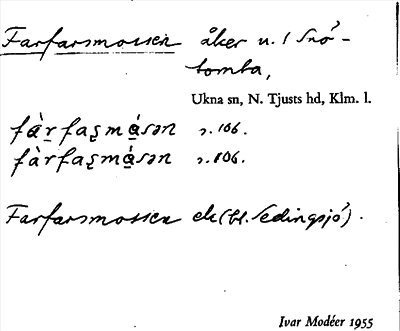 Farfarsmossen åker u. / Snö-
tomta,
Ukna sn, N. Tjusts hd, Klm. l.
fàrfaʂmɑ́sən 2.106.
fàrfaʂmɑ́sən 2.106.
Farfarsmossen ek (bl. Sedingsjö).
Ivar Modéer 1955